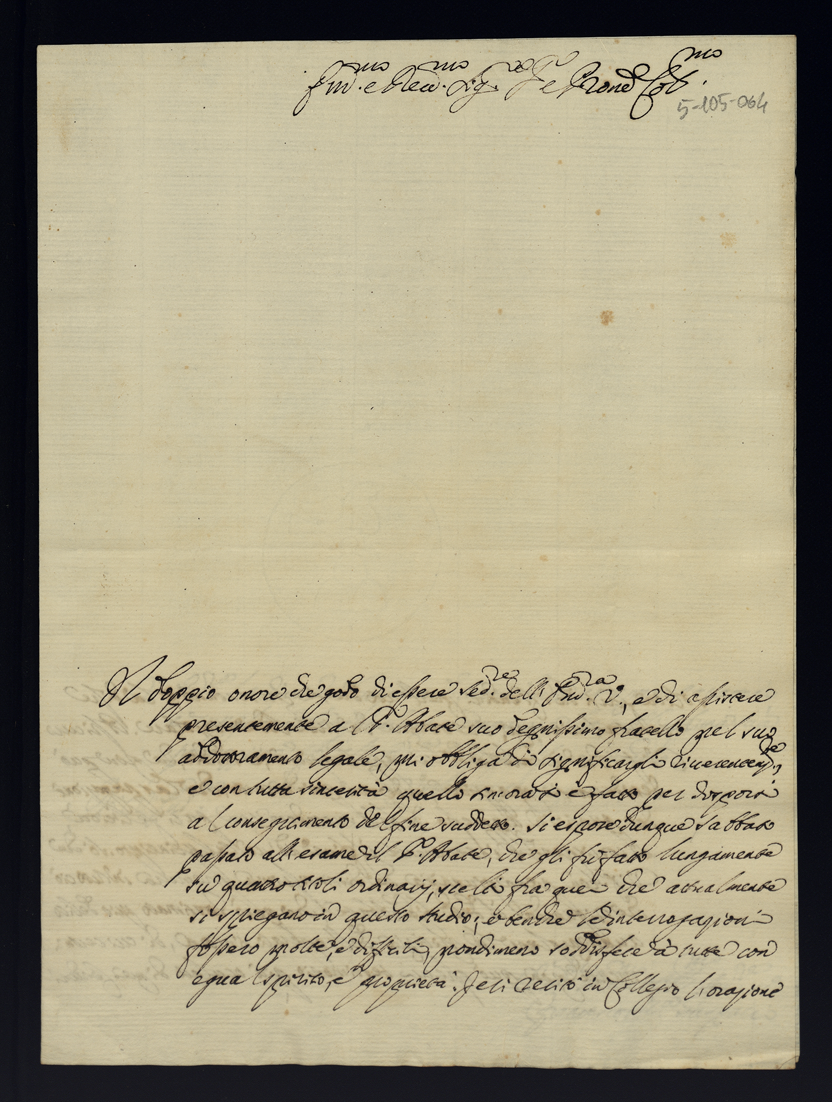 Ill.mo e Rev.mo Sig.re P.re e Pron.e Col.mo
5-105-064
Il doppio onore che godo di essere Ser.re dell' Ill.ma V., e di assistere
presentemente al S.r Abate suo degnissimo fratello pel suo
addottoramento legale, mi obbliga di significargli riverentem.te,
e con tutta sincerità quello sinora si è fatto per disporsi
al conseguimento del fine suddetto. Si espose dunque sabbato
passato all'esame il S.r Abate, che gli fu fatto lungamente
su quattro titoli ordinarj, scelti fra quei che attualmente
si spiegano in questo studio; e benche le interrogazioni
fossero molte, e difficili, nondimeno soddisfece à tutte con
egual spirito, e proprietà. Jeri recitò in Collegio l'orazione